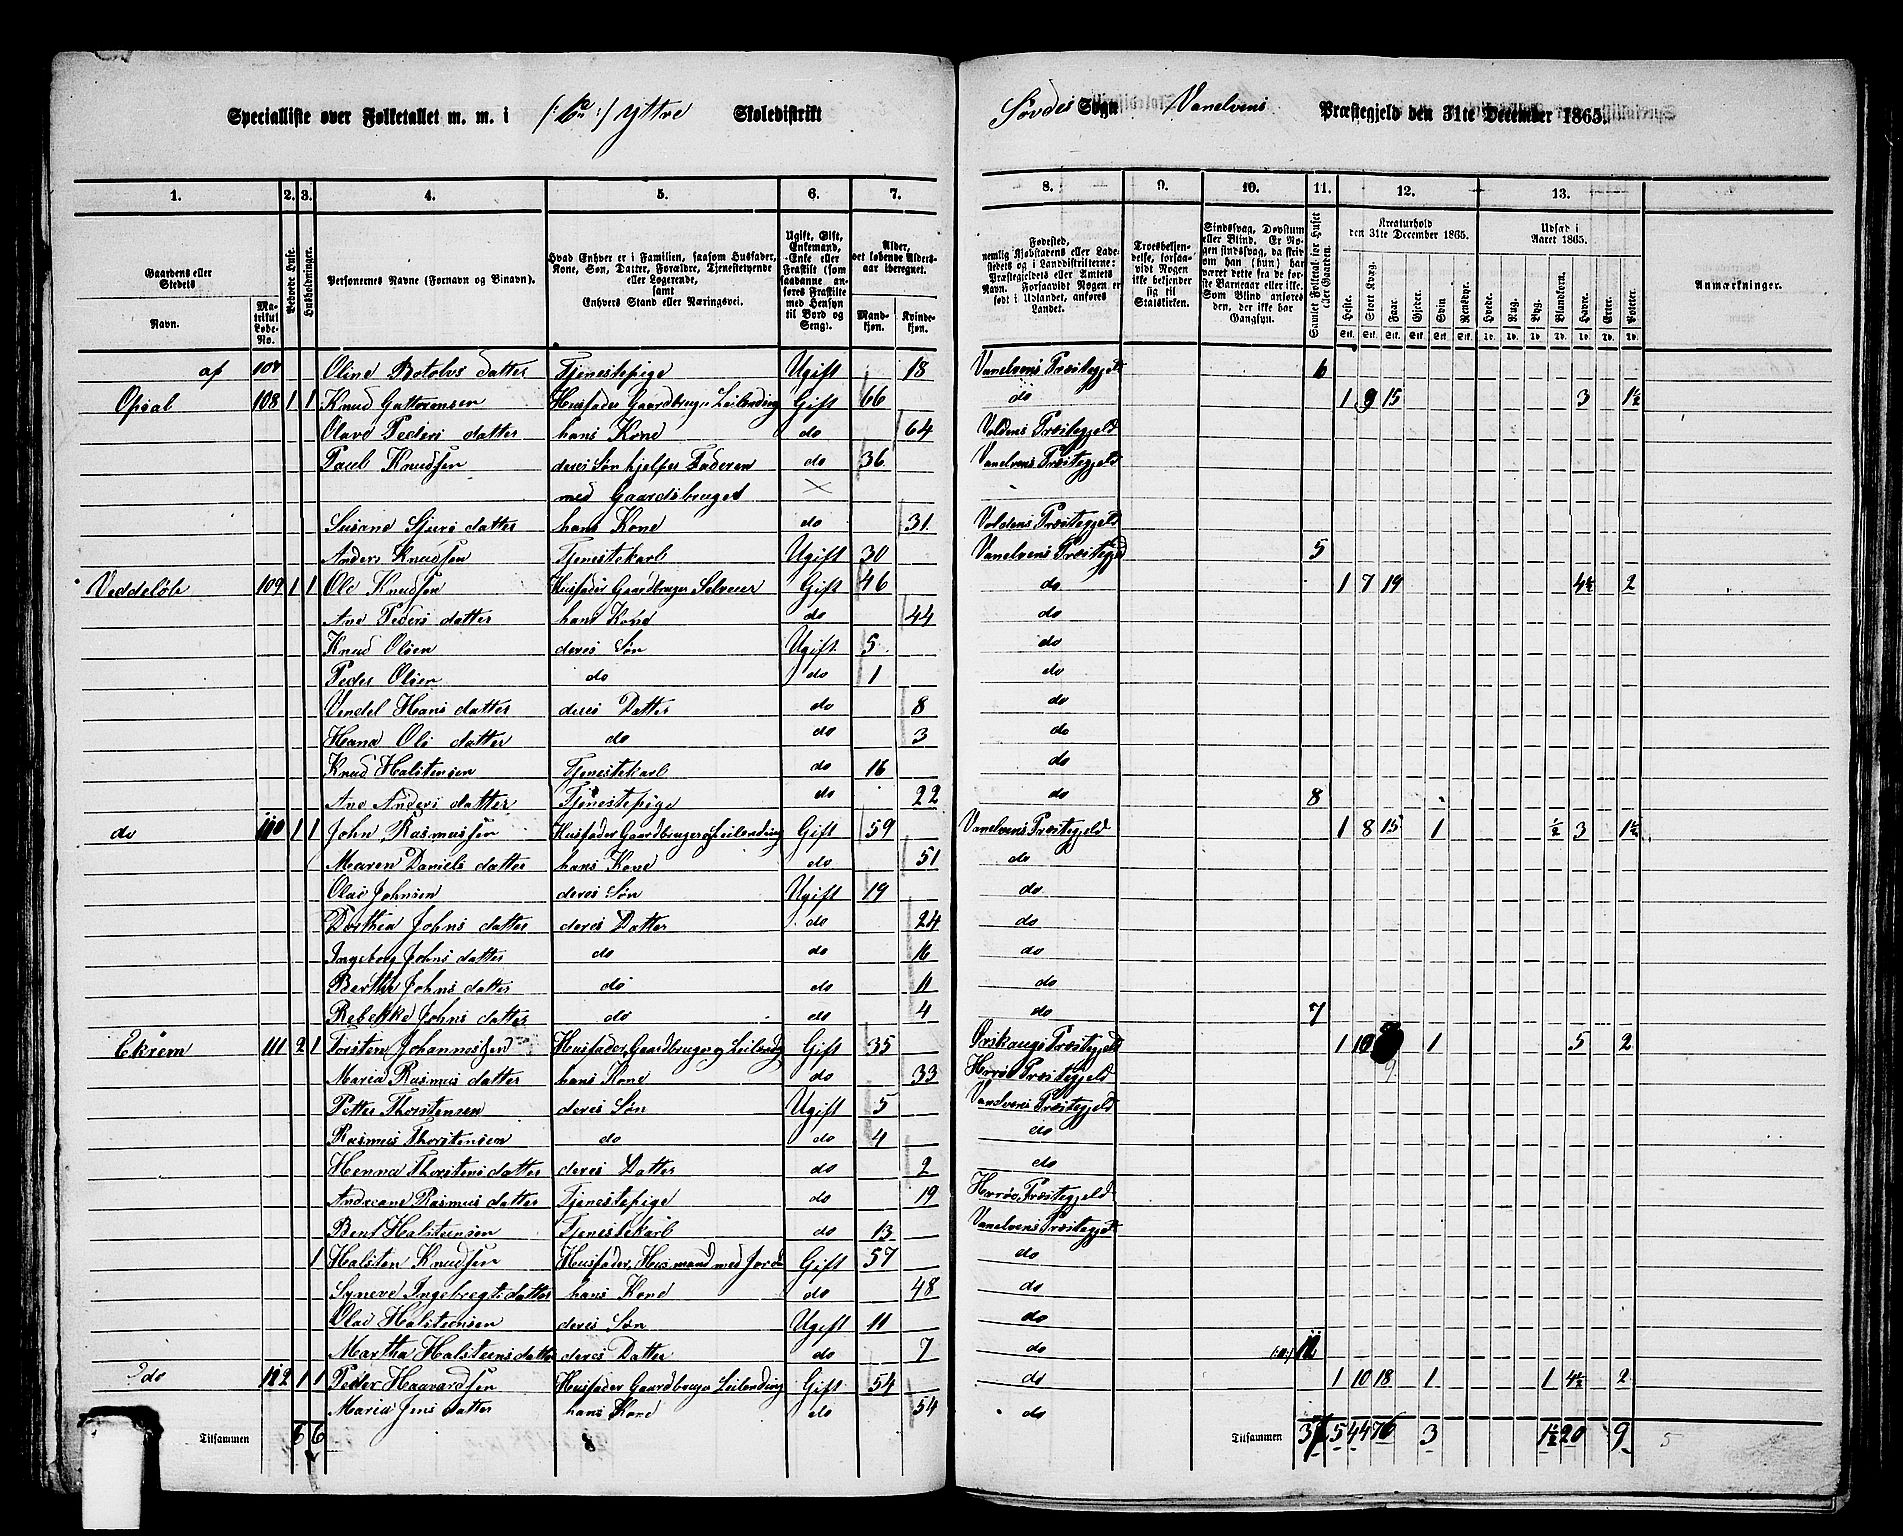 Specialliste over Folketallet m. m. i /: 6te :/ Yttre Skoledistrikt Søvdes Sogn Vanelvens Præstegjeld den 31te December 1865.
1. 2. 3. 4. 5. 6. 7. 8. 9. 10. 11. 12. 13.
Gaardens eller Stedets Navn. Matrikul Løbe-No. Beboede Huse. Husholdninger. Personernes Navne (Fornavn og Binavn). Hvad Enhver er i Familien, saasom Husfader, Kone, Søn, Datter, Forældre, Tjenestetyende eller Logerende, samt Enhvers Stand eller Næringsvei. Ugift, Gift, Enkemand, Enke eller Fraskilt (som saadanne anføres Fraskilte med Hensyn til Bord og Seng). Alder, det løbende Aldersaar iberegnet. Mandkjøn. Kvindekjøn.
Fødested, nemlig Kjøbstadens eller Ladestedets og i Landdistrikterne: Præstegjeldets eller Amtets Navn. Forsaavidt Nogen er født i Udlandet, anføres Landet. Troesbekjendelse, forsaavidt Nogen ikke bekjender sig til Statskirken. Sindssvag, Døvstum eller Blind. Er Nogen sindssvag, da skrives om han (hun) har været dette fra de første Barneaar eller ikke. Som Blind anføres den, der ikke har Gangsyn. Samlet Folketal for Huset eller Gaarden. Kreaturhold den 31te December 1865. Heste. Stort Kvæg. Faar. Gjeder. Svin. Rensdyr. Udsæd i Aaret 1865. Hvede. Rug. Byg. Blandkorn. Havre. Erter. Poteter. Anmærkninger.
af 107 Oline Botolvs datter Tjenestepige Ugift 18 Vanelvens Præstegjeld 6
Opsal 108 1 1 Knud Guttormsen Husfader Gaardbruger Leilending Gift 66 do 1 9 15 3 1½
Olave Peders datter hans Kone do 64 Voldens Præstegjeld
Paul Knudsen deres Søn hjelper Faderen do 36 Vanelvens Præstegjeld
med Gaardsbruget
Susane Sjurs datter hans Kone do 31 Voldens Præstegjeld
Anders Knudsen Tjenestekarl Ugift 30 Vanelvens Præstegjeld 5
Veddeløb 109 1 1 Ole Knudsen Husfader Gaardbruger Selveier Gift 46 do 1 7 19 4½ 2
Ane Peders datter hans Kone do 44 do
Knud Olsen deres Søn Ugift 5 do
Peder Olsen do do 1 do
Vendel Hans datter deres Datter do 8 do
Hana Ols datter do do 3 do
Knud Halstensen Tjenestekarl do 16 do
Ane Anders datter Tjenestepige do 22 do 8
do 110 1 1 John Rasmussen Husfader Gaardbruger og Leilending Gift 59 Vanelvens Præstegjeld 1 8 15 1 ½ 3 1½
Maren Daniels datter hans Kone do 51 do
Olai Johnsen deres Søn Ugift 19 do
Dorthea Johns datter deres Datter do 24 do
Ingeborg Johns datter do do 16 do
Berthe Johns datter do do 11 do
Rebekke Johns datter do do 4 do 7
Ekrem 111 2 1 Torsten Johannessen Husfader, Gaardbruger og Leilending Gift 35 Ørskougs Præstegjeld 1 10 9 1 5 2
Maria Rasmus datter hans Kone do 33 Herrø Præstegjeld
Petter Thorstensen deres Søn Ugift 5 Vanelvens Præstegjeld
Rasmus Thorstensen do do 4 do
Henna Thorstens datter deres Datter do 2 do
Andreane Rasmus datter Tjenestepige do 19 Herrø Præstegjeld
Bent Halstensen Tjenestekarl do 13 Vanelvens Præstegjeld
1 Halsten Knudsen Husfader, Husmand med Jord Gift 57 do
Syneve Ingebregts datter hans Kone do 48 do
Olai Halstensen deres Søn Ugift 11 do
Martha Halstens datter deres Datter do 7 do 11
do 112 1 1 Peder Haavardsen Husfader Gaardbruger Leilending Gift 54 do 1 10 18 1 1 4½ 2
Maria Jens datter hans Kone do 54 do
Tilsammen 6 6 8 Tilsammen 37 5 44 76 3 1½ 20 9 5